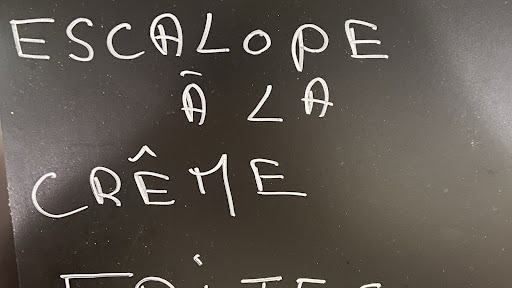 ESCALOPE
À LA
CRÊME